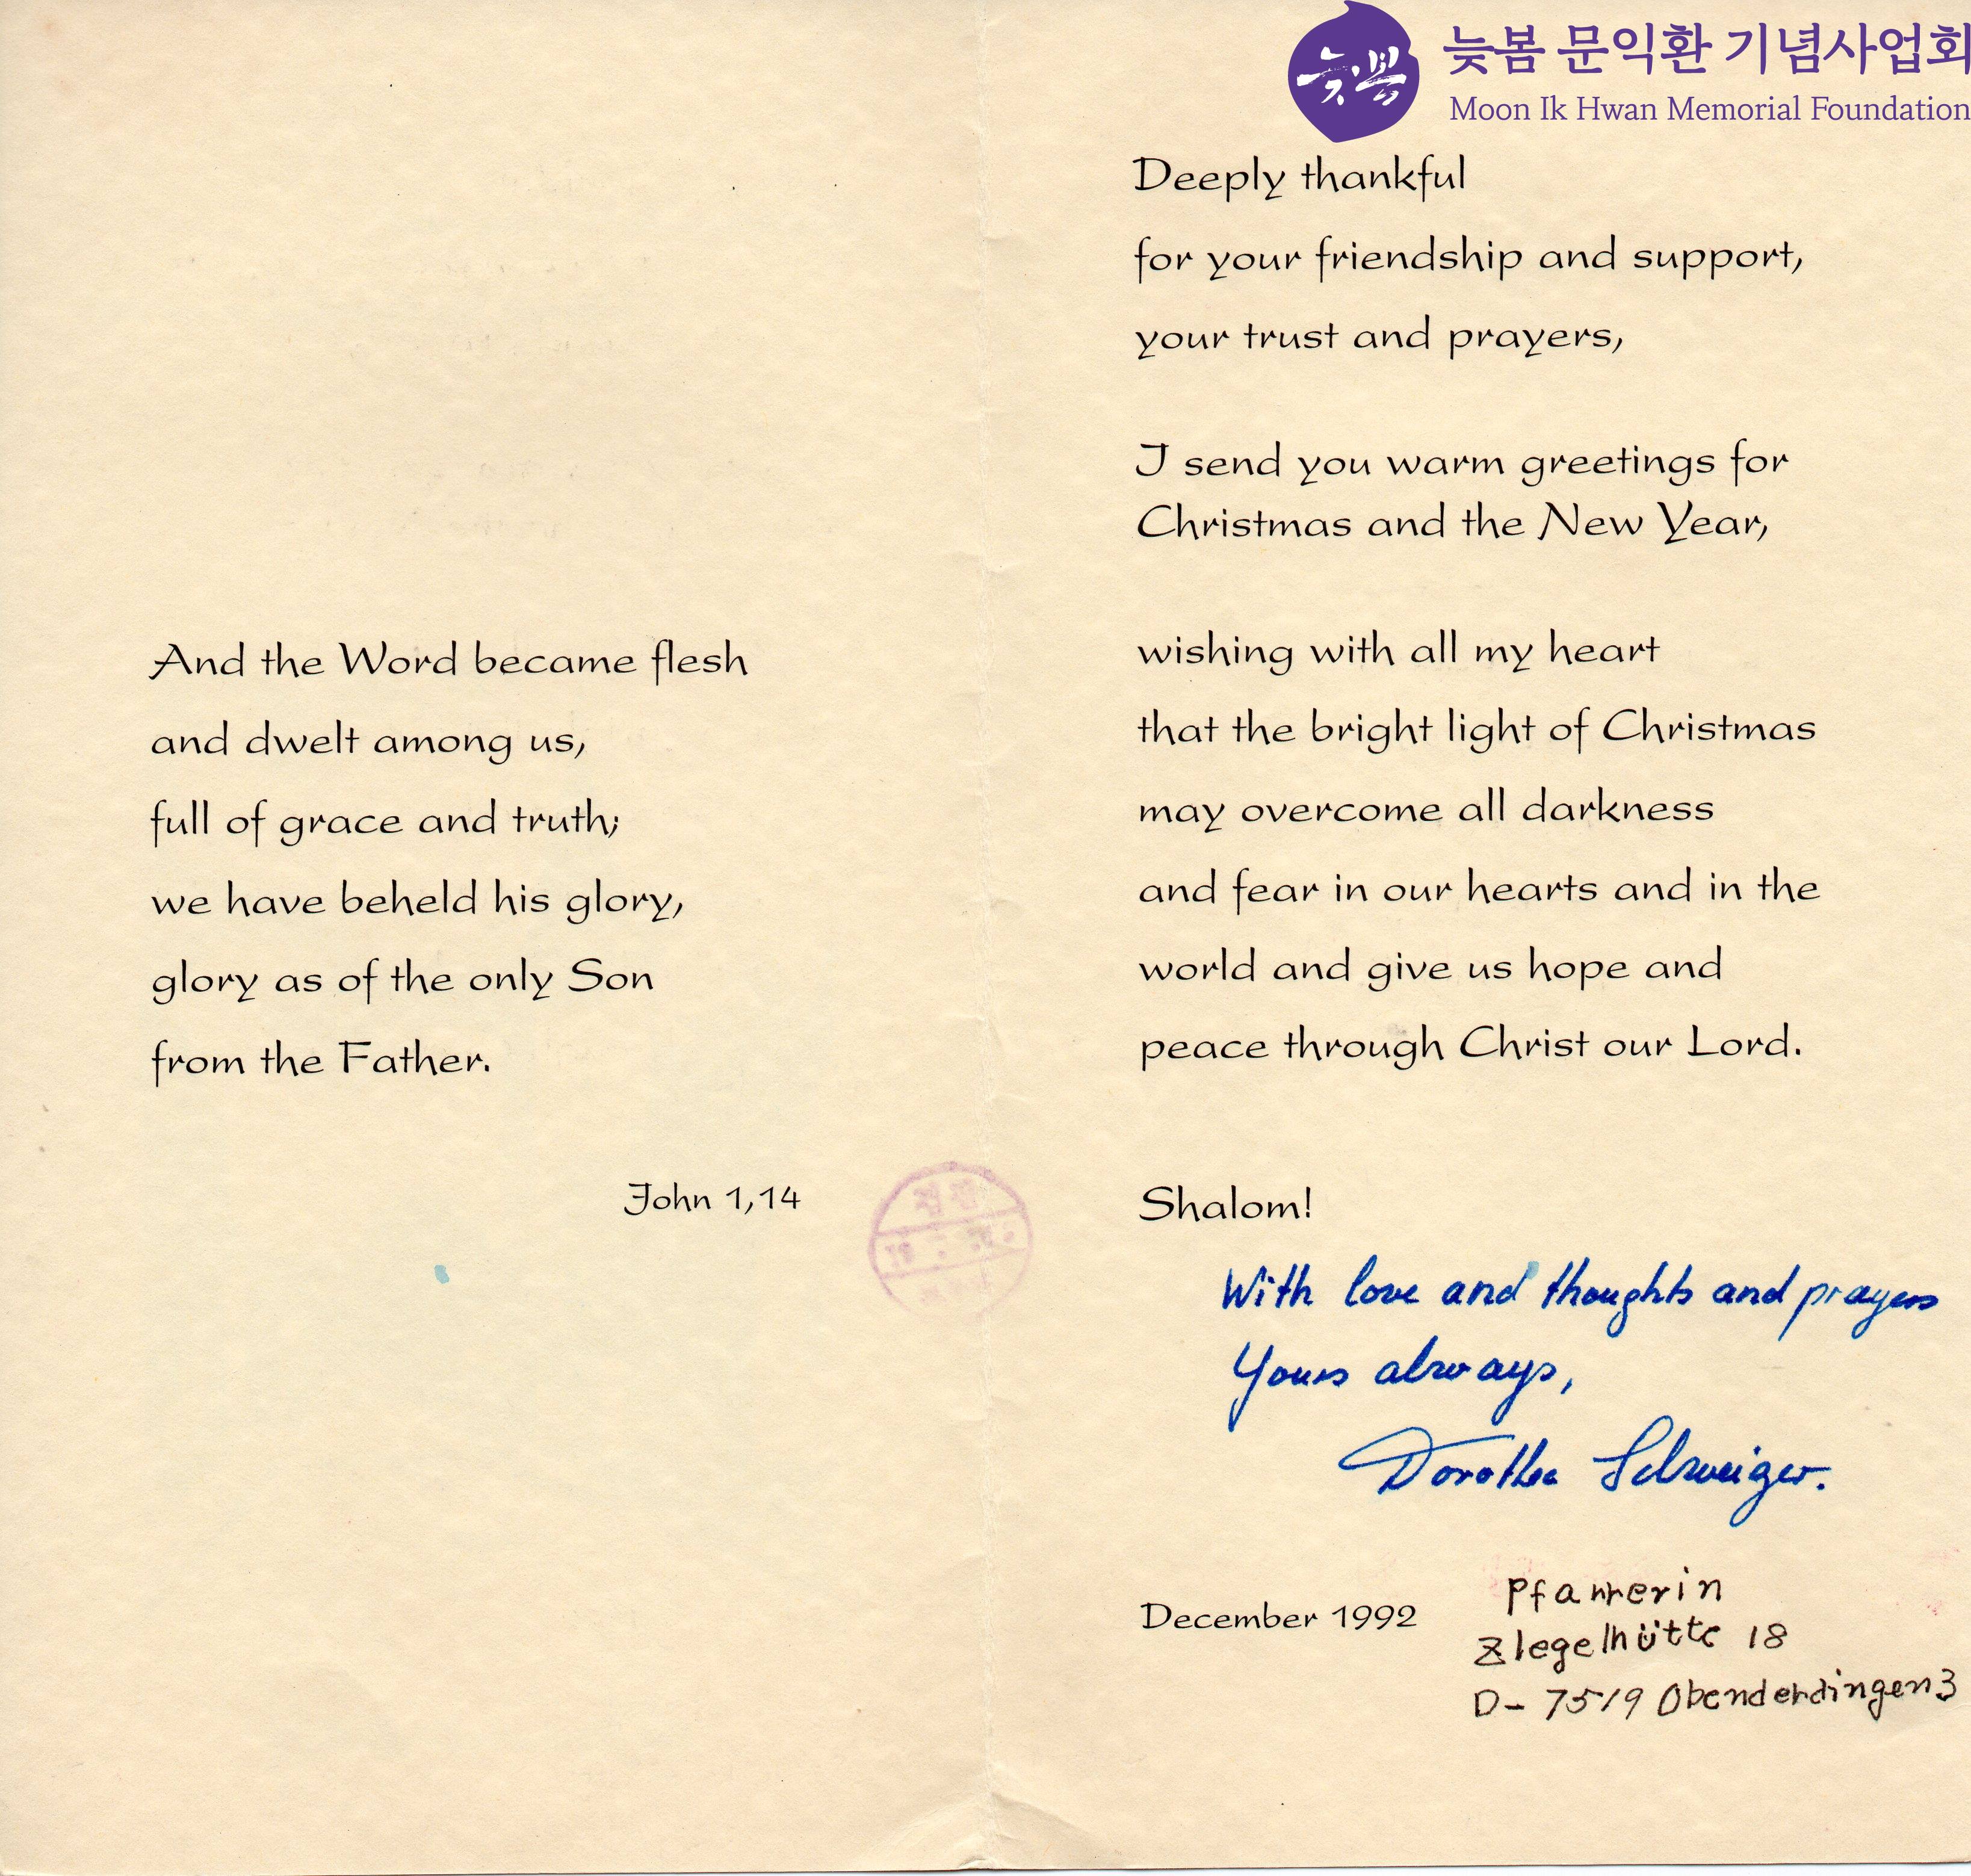 And the Word became flesh
and dwelt among us,
full of grace and truth;
we have beheld his glory,
glory as of the only Son
from the Father.
John 1,14
늦봄
늦봄 문익환 기념사업회
Moon Ik Hwan Memorial Foundation
Deeply thankful
for your friendship and support,
your trust and prayers,
I send you warm greetings for
Christmas and the New Year,
wishing with all my heart
that the bright light of Christmas
may overcome all darkness
and fear in our hearts and in the
world and give us hope and
peace through Christ our Lord.
Shalom!
With love and thoughts and prayers
Yours always,
Dorothea Schweiger.
December 1992
Pfarrerin
Zlegelhütte 18
D- 7519 Obenderdingen 3